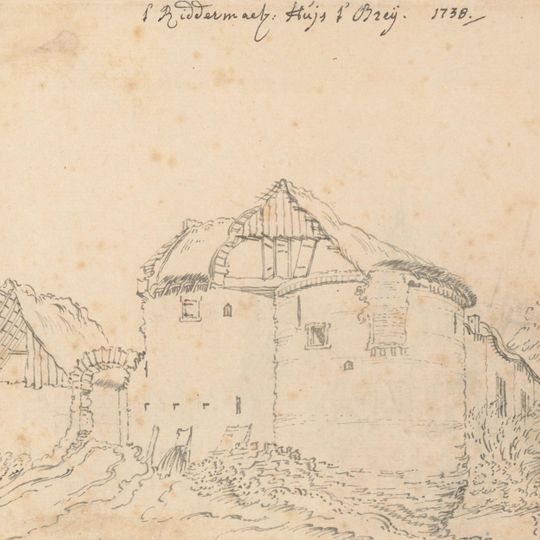 't Riddermaetz: Huijs t' Breij. 1738.